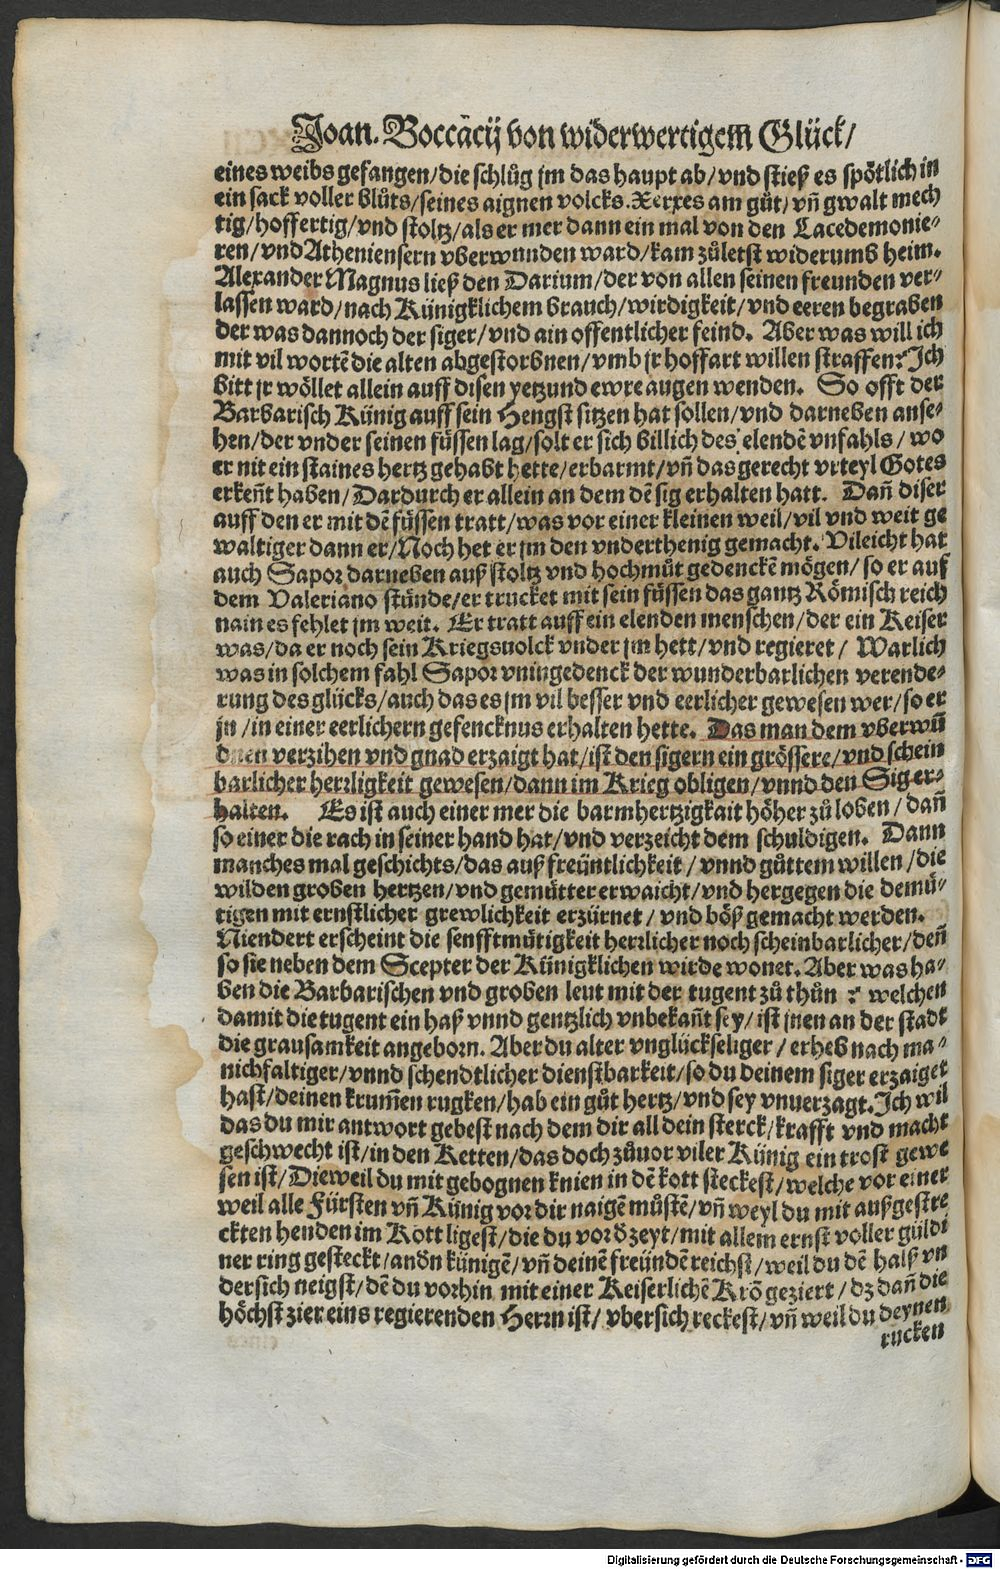 Joan. Boccacij von widerwertigem Glück/
eines weibs gefangen/die schlůg jm das haupt ab/vnd stieß es spötlich in
ein sack voller blůts/seines aignen volcks. Xerxes am gůt/vñ gwalt mech
tig/hoffertig/vnd stoltz/als er mer dann ein mal von den Lacedemonie-
ren/vnd Atheniensern vberwunden ward/kam zůletst widerumb heim.
Alexander Magnus ließ den Darium/der von allen seinen freunden ver-
lassen ward/nach Künigklichem brauch/wirdigkeit/vnd eeren begraben
der was dannoch der siger/vnd ain offentlicher feind. Aber was will ich
mit vil wortẽ die alten abgestorbnen/vmb jr hoffart willen straffen? Ich
bitt jr wöllet allein auff disen yetzund ewre augen wenden. So offt der
Barbarisch Künig auff sein Hengst sitzen hat sollen/vnd darneben anse-
hen/der vnder seinen füssen lag/solt er sich billich des elendẽ vnfahls/wo
er nit ein staines hertz gehabt hette/erbarmt/vñ das gerecht vrteyl Gotes
erkeñt haben/Dardurch er allein an dem dẽ sig erhalten hatt. Dañ diser
auff den er mit dẽ füssen tratt/was vor einer kleinen weil/vil vnd weit ge
waltiger dann er/Noch het er jm den vnderthenig gemacht. Vileicht hat
auch Sapor darneben auß stoltz vnd hochmůt gedenckẽ mögen/so er auf
dem Valeriano stünde/er trucket mit sein füssen das gantz Römisch reich
nain es fehlet jm weit. Er tratt auff ein elenden menschen/der ein Keiser
was/da er noch sein Kriegsuolck vnder jm hett/vnd regieret/ Warlich
was in solchem fahl Sapor vningedenck der wunderbarlichen verende-
rung des glücks/auch das es jm vil besser vnd eerlicher gewesen wer/so er
jn/in einer eerlichern gefencknus erhalten hette. Das man dem vberwũ
dnen verzihen vnd gnad erzaigt hat/ist den sigern ein grössere/vnd schein
barlicher herrligkeit gewesen/dann im Krieg obligen/vnnd den Sig er-
halten. Es ist auch einer mer die barmhertzigkait höher zů loben/dañ
so einer die rach in seiner hand hat/vnd verzeicht dem schuldigen. Dann
manches mal geschichts/das auß freüntlichkeit/vnnd gůttem willen/die
wilden groben hertzen/vnd gemütter erwaicht/vnd hergegen die demü-
tigen mit ernstlicher grewlichkeit erzürnet/vnd böß gemacht werden.
Niendert erscheint die senfftmütigkeit herrlicher noch scheinbarlicher/deñ
so sie neben dem Scepter der Künigklichen wirde wonet. Aber was ha-
ben die Barbarischen vnd groben leut mit der tugent zů thůn? welchen
damit die tugent ein haß vnnd gentzlich vnbekañt sey/ist jnen an der stadt
die grausamkeit angeborn. Aber du alter vnglückseliger/erheb nach ma-
nichfaltiger/vnnd schendtlicher dienstbarkeit/so du deinem siger erzaiget
hast/deinen krum̃en rugken/hab ein gůt hertz/vnd sey vnuerzagt. Ich wil
das du mir antwort gebest nach dem dir all dein sterck/krafft vnd macht
geschwecht ist/in den Ketten/das doch zůuor viler Künig ein trost gewe
sen ist/Dieweil du mit gebognen knien in dẽ kott steckest/welche vor einer
weil alle Fürsten vñ Künig vor dir naigẽ můstẽ/vñ weyl du mit außgestre
ckten henden im Kott ligest/die du vor d̃ zeyt/mit allem ernst voller güldi
ner ring gesteckt/and̃n künigẽ/vñ deinẽ freündẽ reichst/weil du dẽ halß vn
dersich neigst/dẽ du vorhin mit einer Keiserlichẽ Krõ geziert/dz dañ die
höchst zier eins regierenden Herrn ist/vbersich reckest/vñ weil du deynen
rucken
Digitalisierung gefördert durch die Deutsche Forschungsgemeinschaft - DFG